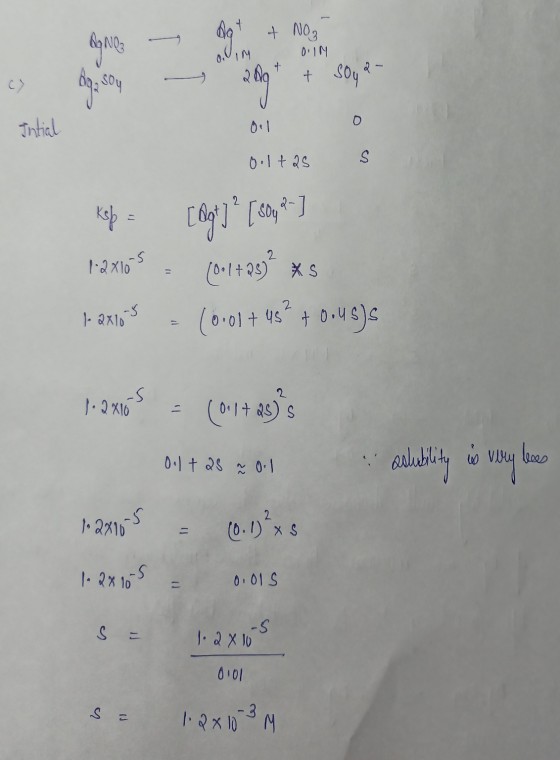 AgNO3 ⟶ Ag+ + NO3-
0.1M 0.1M
c) Ag2SO4 ⟶ 2Ag+ + SO4 2-
Intial 0.1 0
0.1+2S S
Ksp = [Ag+]² [SO4 2-]
1.2x10^-5 = (0.1+2S)² x S
1.2x10^-5 = (0.01 + 4S² + 0.4S)S
1.2x10^-5 = (0.1+2S)² S
0.1+2S ≈ 0.1 ∵ solubility is very less
1.2x10^-5 = (0.1)² x S
1.2x10^-5 = 0.01S
S = 1.2x10^-5
0.01
S = 1.2x10^-3 M